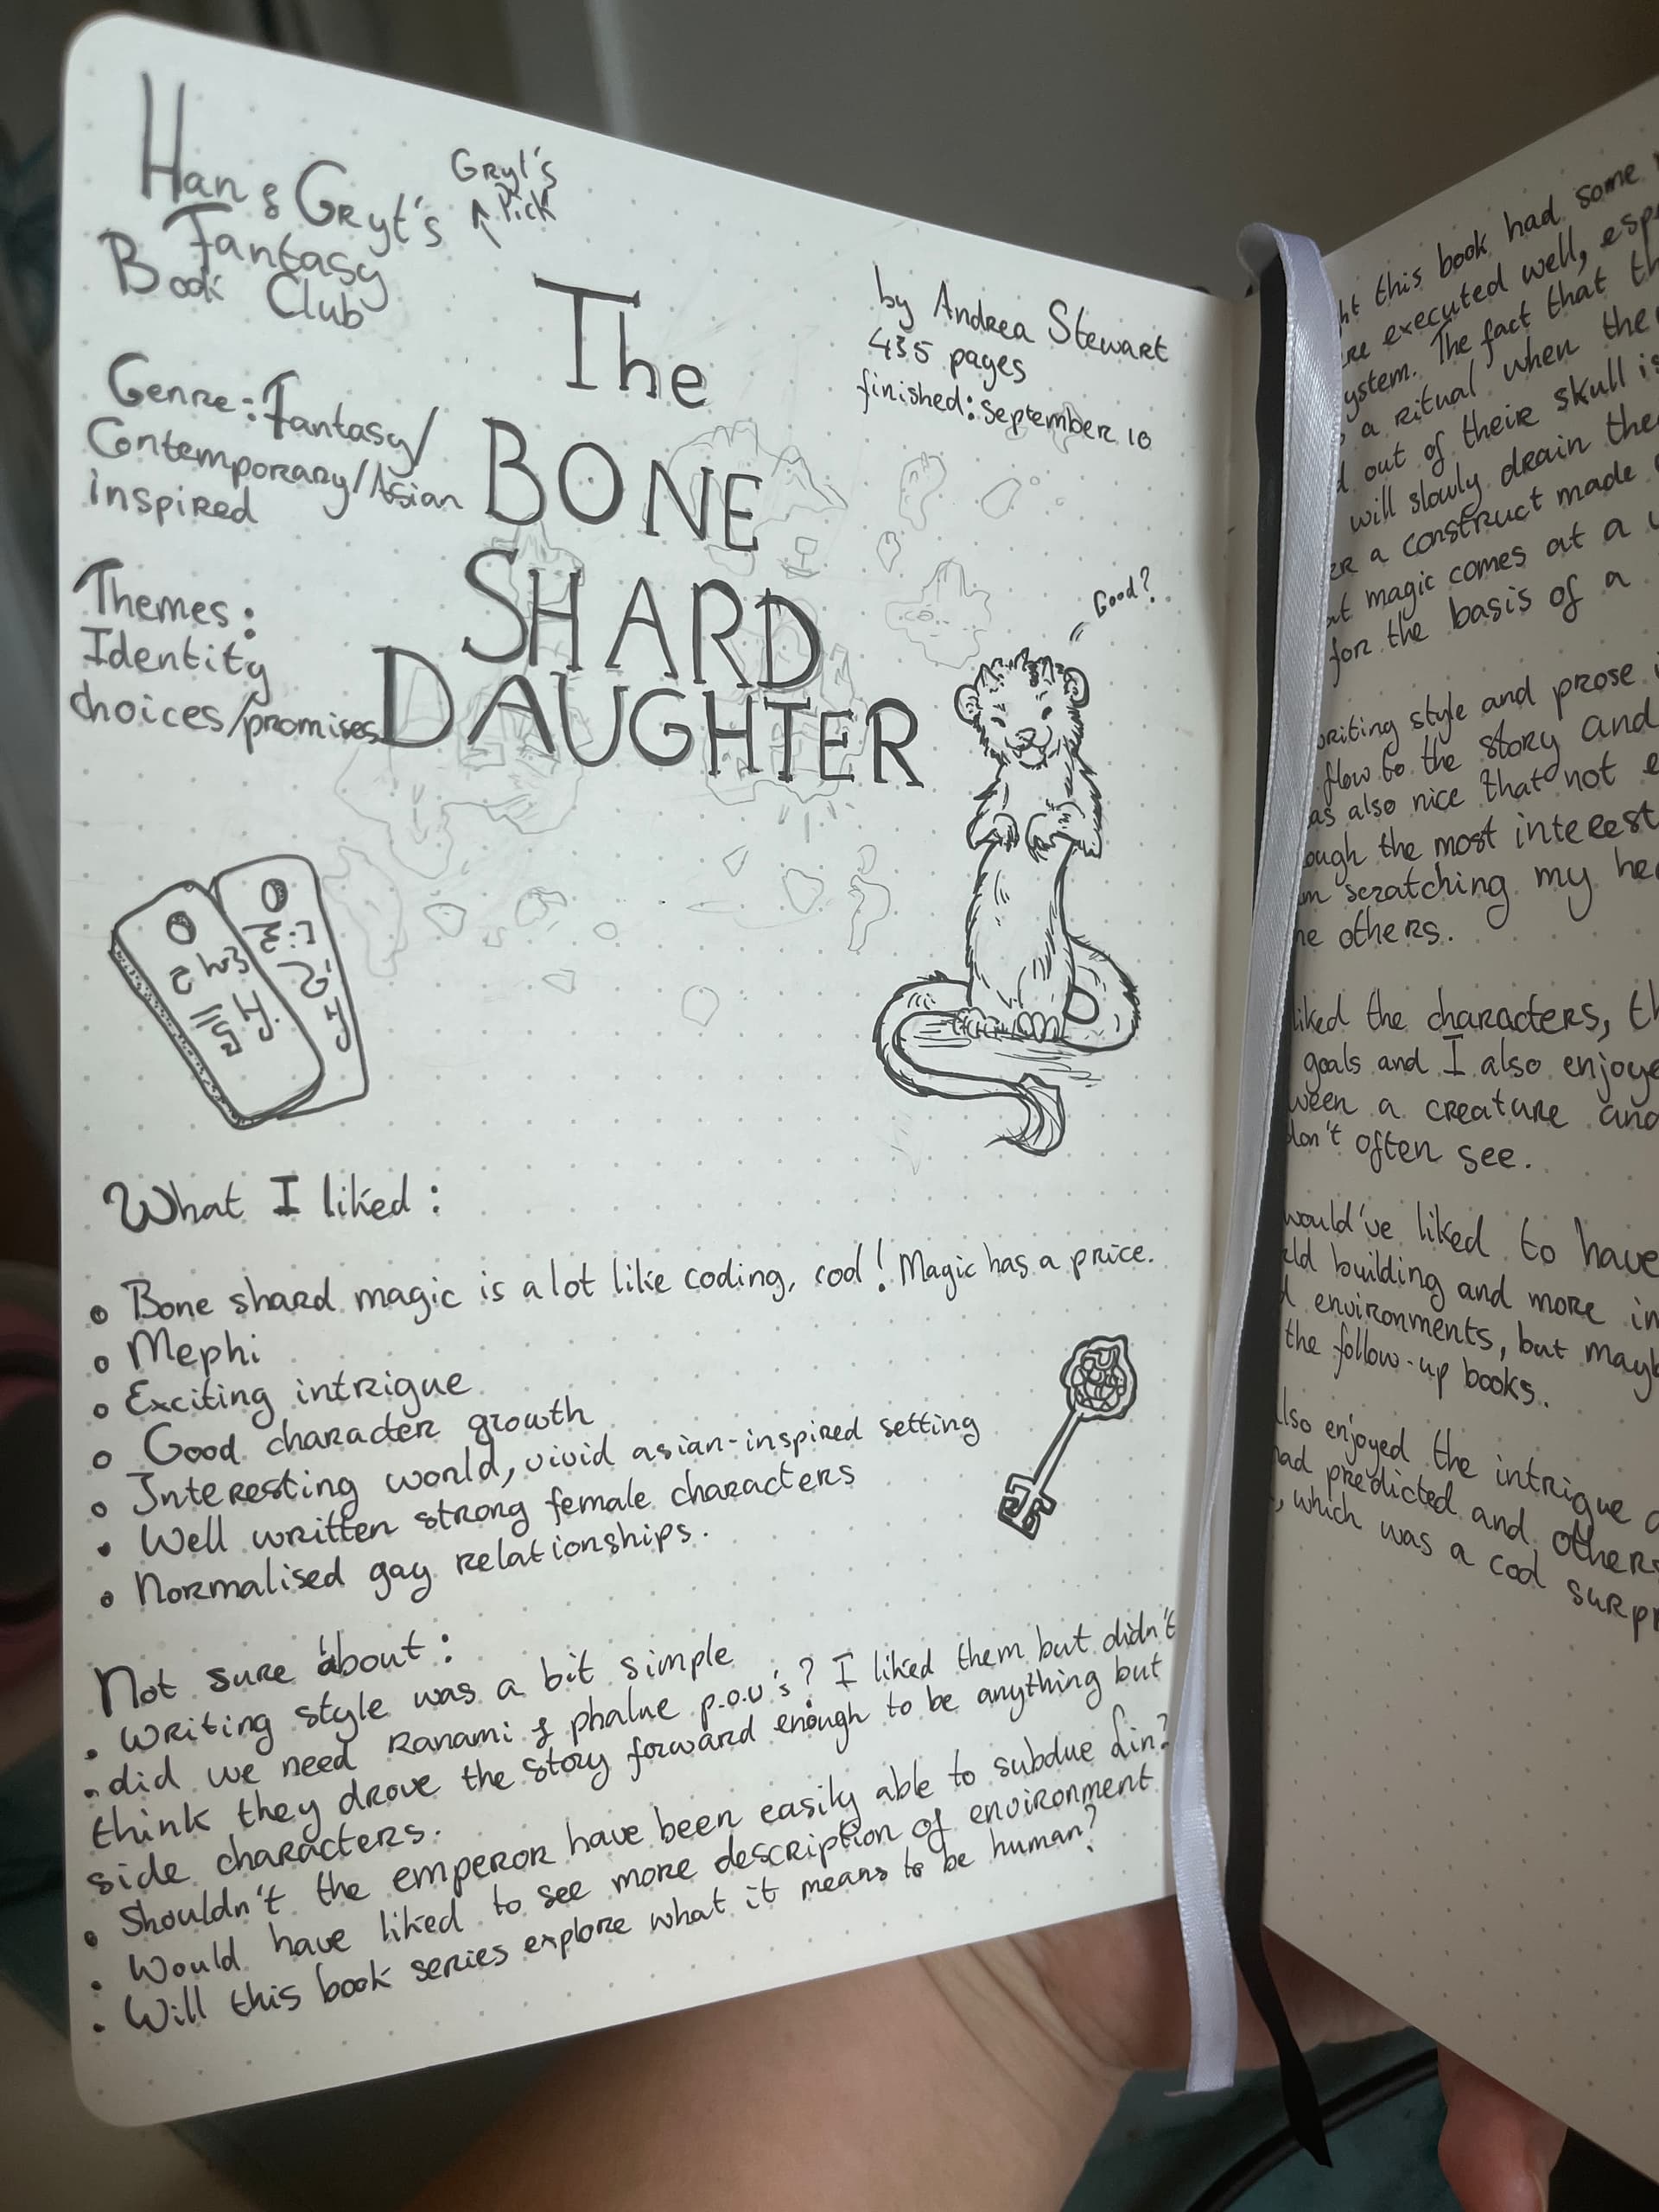 Han & Gryt's
Fantasy
Book Club
Gryt's
Pick
The
BONE
SHARD
DAUGHTER
by Andrea Stewart
435 pages
finished: September 10
Genre: Fantasy/
Contemporary/Asian
inspired
Themes:
Identity
choices/promises
Good?
What I liked:
Bone shard magic is a lot like coding, cool! Magic has a price.
Mephi
Exciting intrigue
Good character growth
Interesting world, vivid asian-inspired setting
Well written strong female characters
Normalised gay relationships.
Not sure about:
Writing style was a bit simple
did we need Ranami & phalue p.o.v's? I liked them but didn't
think they drove the story forward enough to be anything but
side characters.
Shouldn't the emperor have been easily able to subdue Lin?
Would have liked to see more description of environment
Will this book series explore what it means to be human?
this book had some
executed well,
ystem. The fact that
a ritual when the
out of their skull is
will slowly drain
a construct made
magic comes at a
for the basis of a
writing style and prose
flow to the story and
also nice that not
ough the most interest
scratching my
others.
liked the characters,
goals and I also enjoye
ween a creature and
don't often see.
would've liked to have
ld building and more
environments, but
the follow-up books.
lso enjoyed the intrigue
had predicted and others
, which was a cool surpr